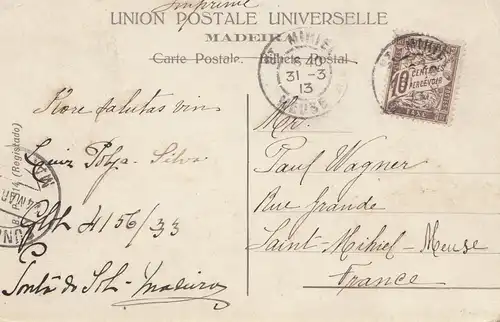 Imprimé
UNION POSTALE UNIVERSELLE
MADEIRA
Carte Postale. Bilhete Postal
ST MIHIEL
6 40
31 -3
13
MEUSE
ST MIHIEL
10 CENTIMES
A PERCEVOIR
TAXE
Kore salutas vin
Luiz Polya-Silva
Glth 4156/33
Ponta do Sol-Madeira
Mr.
Paul Wagner
Rue Grande
Saint-Mihiel-Meuse
France
14 (Registado)
MAR